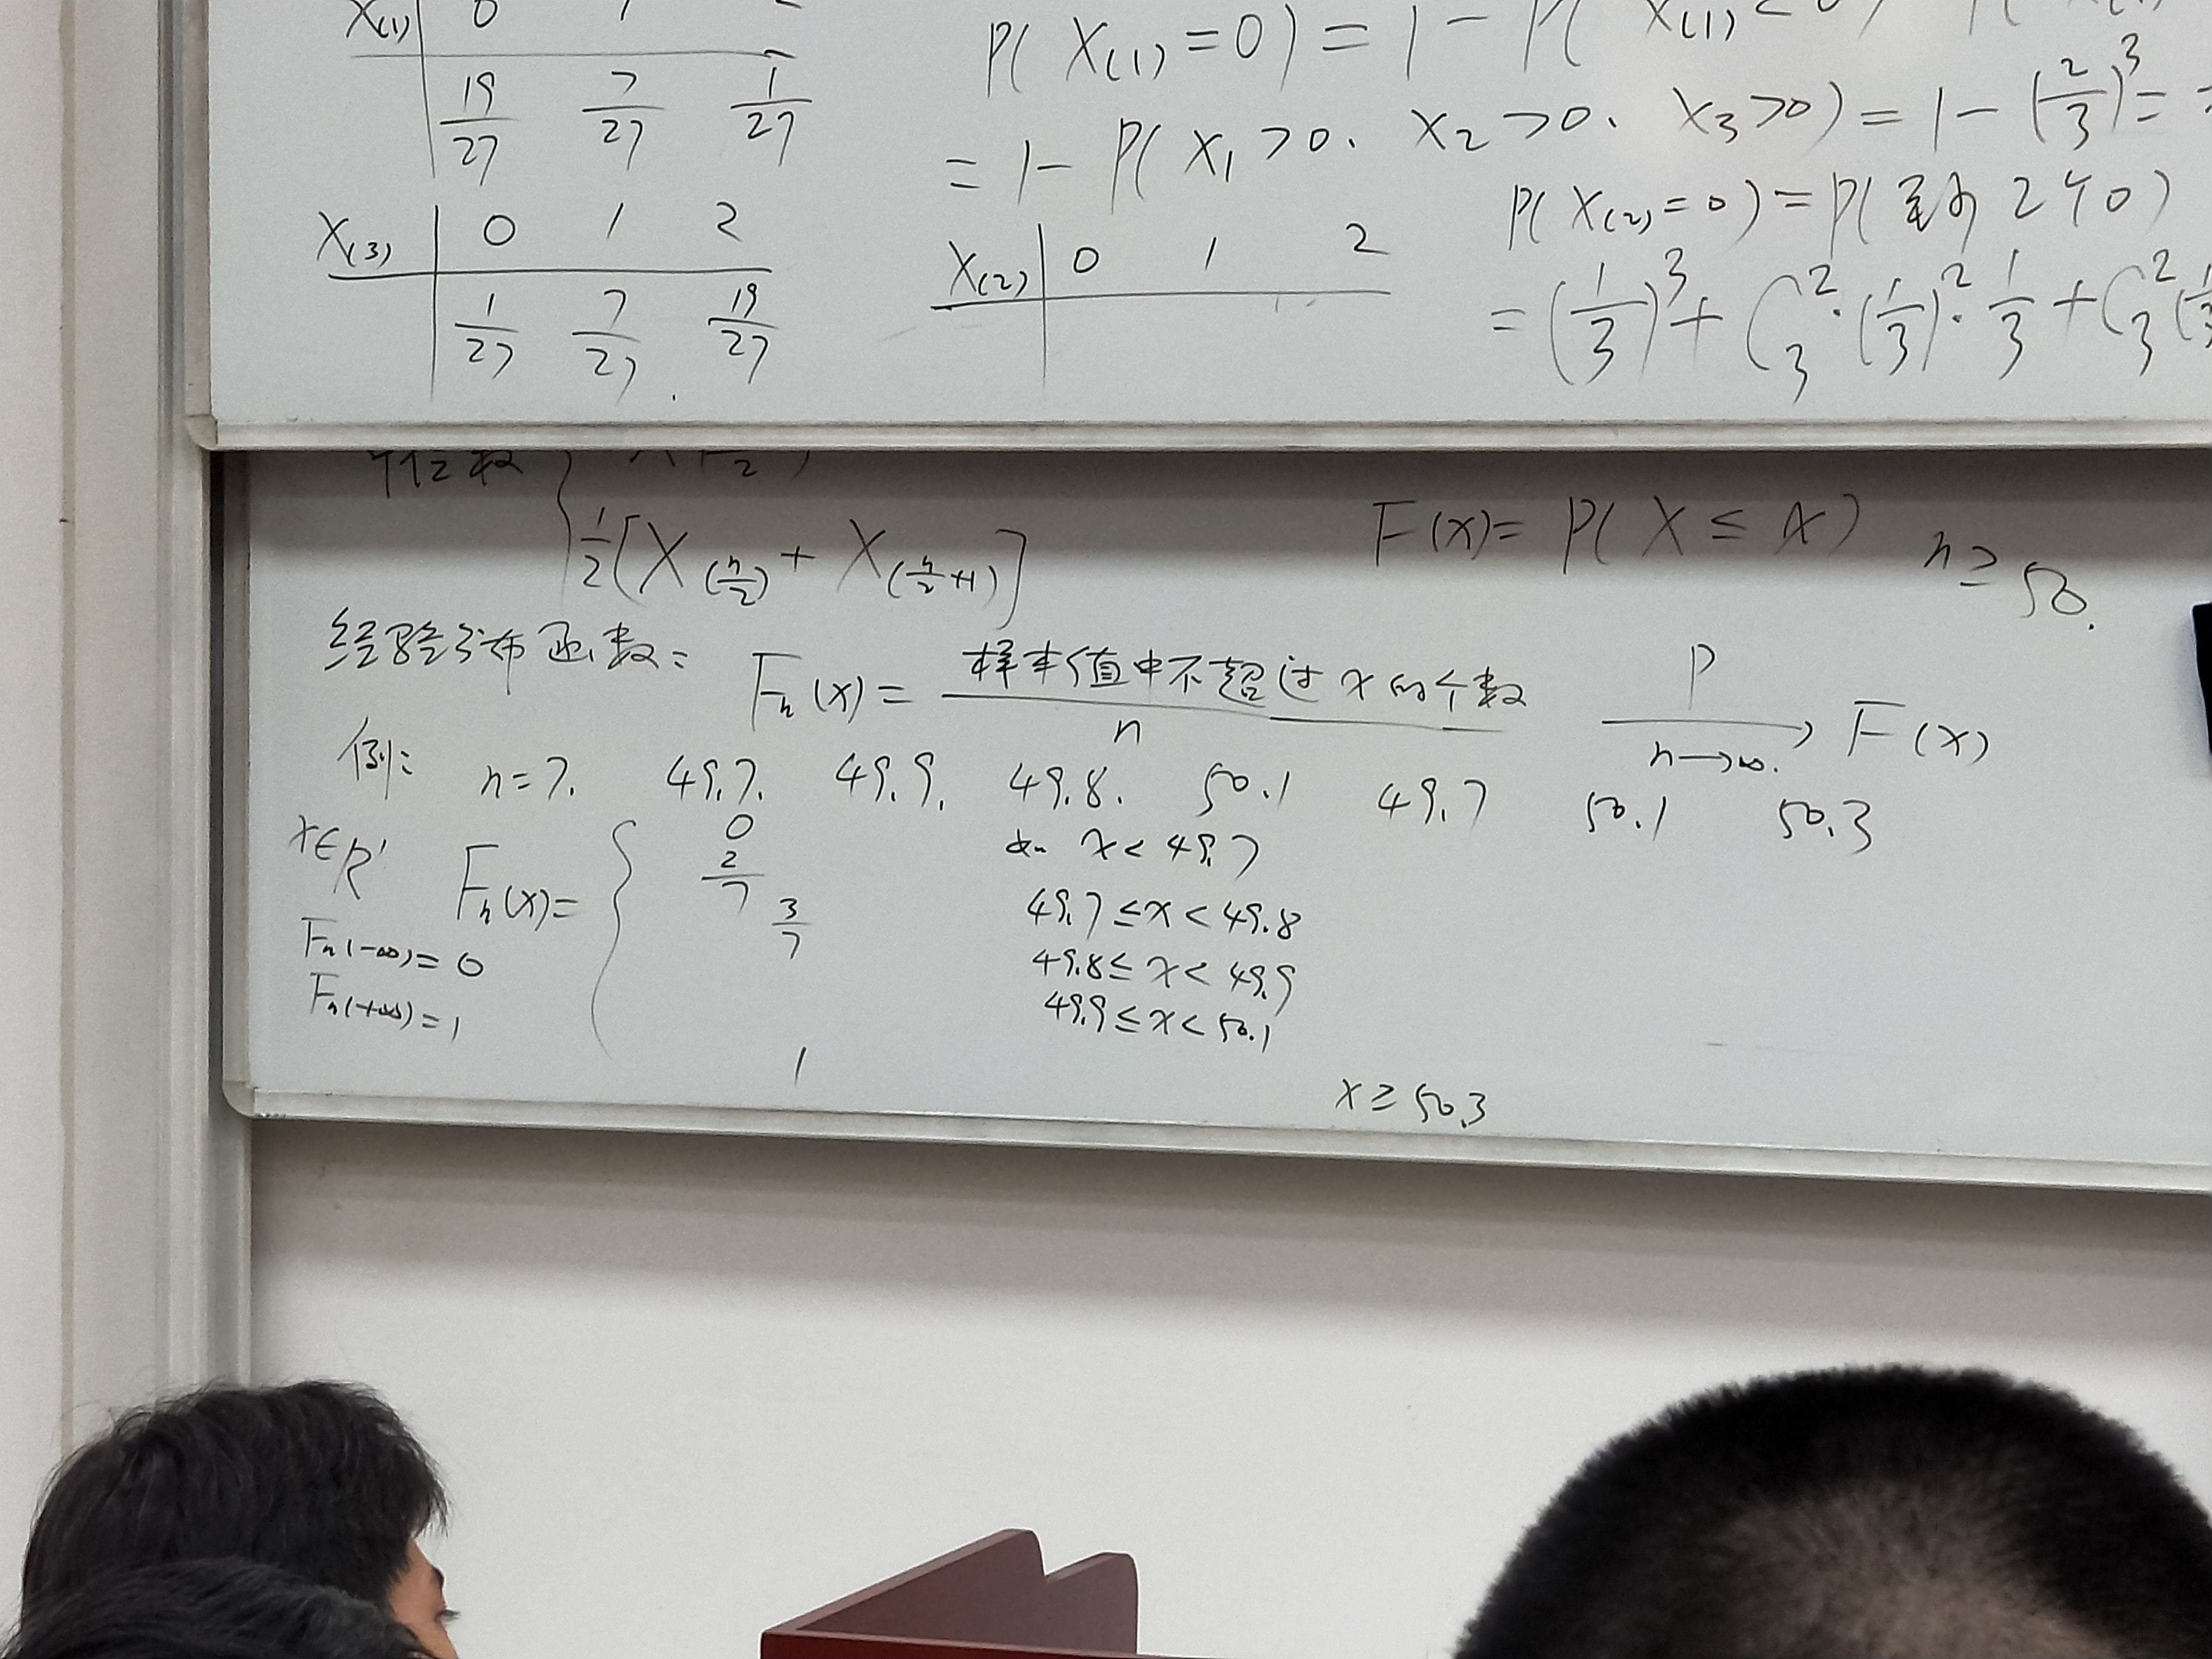 X₍₁₎ 0 1
19/27 7/27 1/27
X₍₃₎ 0 1 2
1/27 7/27 19/27
P( X₍₁₎=0 ) = 1 - P( X₍₁₎
= 1 - P( X₁>0. X₂>0. X₃>0 ) = 1 - (2/3)³ =
P( X₍₂₎=0 ) = P( 至少2个0 )
X₍₂₎ 0 1 2
= (1/3)³ + C₃²·(1/3)²·1/3 + C₃²(1/3
1/2[X₍n/2₎ + X₍n/2+1₎]
F(x) = P( X ≤ x ) n ≥ 50.
经验分布函数: Fₙ(x) = 样本值中不超过x的个数/n P n→∞. → F(x)
例: n=7. 49.7. 49.9. 49.8. 50.1 49.7 50.1 50.3
x∈R¹ Fₙ(x) = {
0 x < 49.7
2/7 49.7 ≤ x < 49.8
3/7 49.8 ≤ x < 49.9
49.9 ≤ x < 50.1
1 x ≥ 50.3
Fₙ(-∞) = 0
Fₙ(+∞) = 1